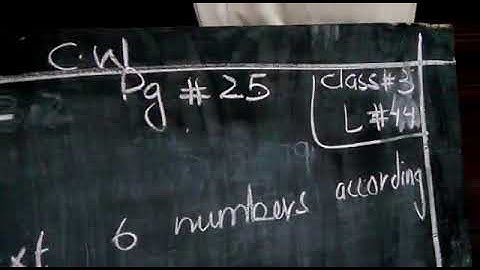 C.W
Pg # 25
Class # 3
L # 44
6 numbers according